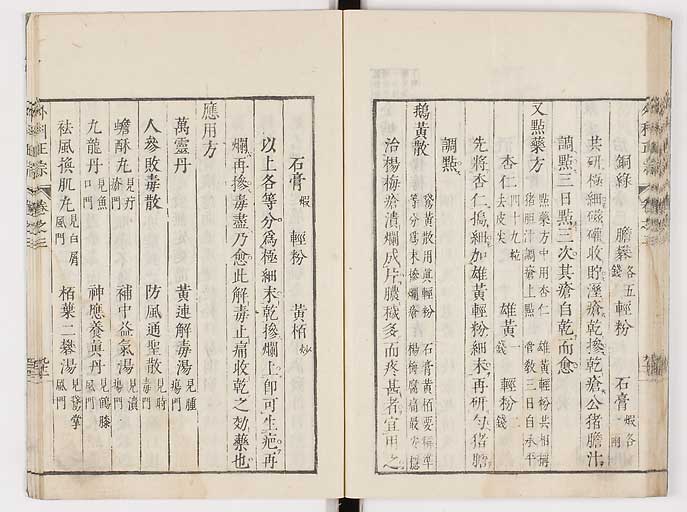 銅綠 膽礬各五錢 輕粉 石膏煆各一兩
共研極細磁礶收貯溼瘡乾摻乾瘡公猪膽汁
調點三日點三次其瘡自乾而愈
又點藥方 點藥方中用杏仁 雄黃輕粉共相搆
猪胆汁調瘡上點 管教三日自承平
杏仁四十九粒去皮尖 雄黃一錢 輕粉一錢
先將杏仁搗細加雄黃輕粉細末再研勻猪膽
調點
鵝黃散 鵞黃散用眞輕粉 石膏黃栢要稱準
等分爲末摻爛瘡 楊梅腐痛最安穩
治楊梅瘡潰爛成片膿穢多而疼甚者宜用之
石膏煆 輕粉 黃栢炒
以上各等分爲極細末乾摻爛上卽可生疤再
爛再摻毒盡乃愈此解毒止痛收乾之效藥也
應用方
萬靈丹 黃連解毒湯見腫瘍門
人參敗毒散 防風通聖散見時毒門
蟾酥丸見疔瘡門 補中益氣湯見潰瘍門
九龍丹見魚口門 神應養眞丹見鶴膝風門
袪風換肌丸見白屑風門 栢葉二礬湯見鵞掌風門
外科正宗 卷之三